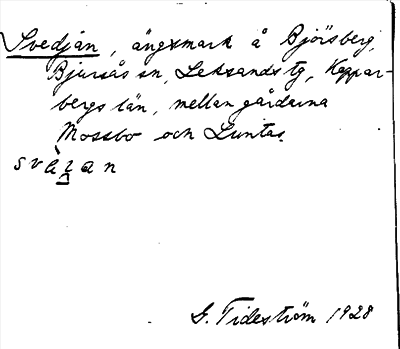 Svedjan, ängsmark å Björsberg,
Bjursås sn, Leksands tg, Koppar-
bergs län, mellan gårdarna
Mossbo och Luntas.
G. Tideström 1928